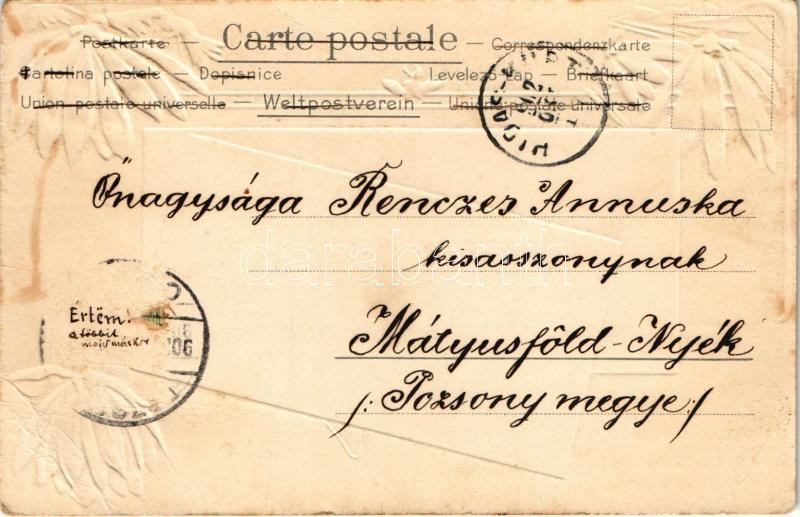 Postkarte — Carte postale — Correspondenzkarte
Cartolina postale — Dopisnice Levelező-Lap — Briefkaart
Union postale universelle — Weltpostverein — Union postale universale
Őnagysága Renczes Annuska
kisasszonynak
Mátyusföld-Nyék
/: Pozsony megye :/
Értem!
a többit
majd máskor
darabanth